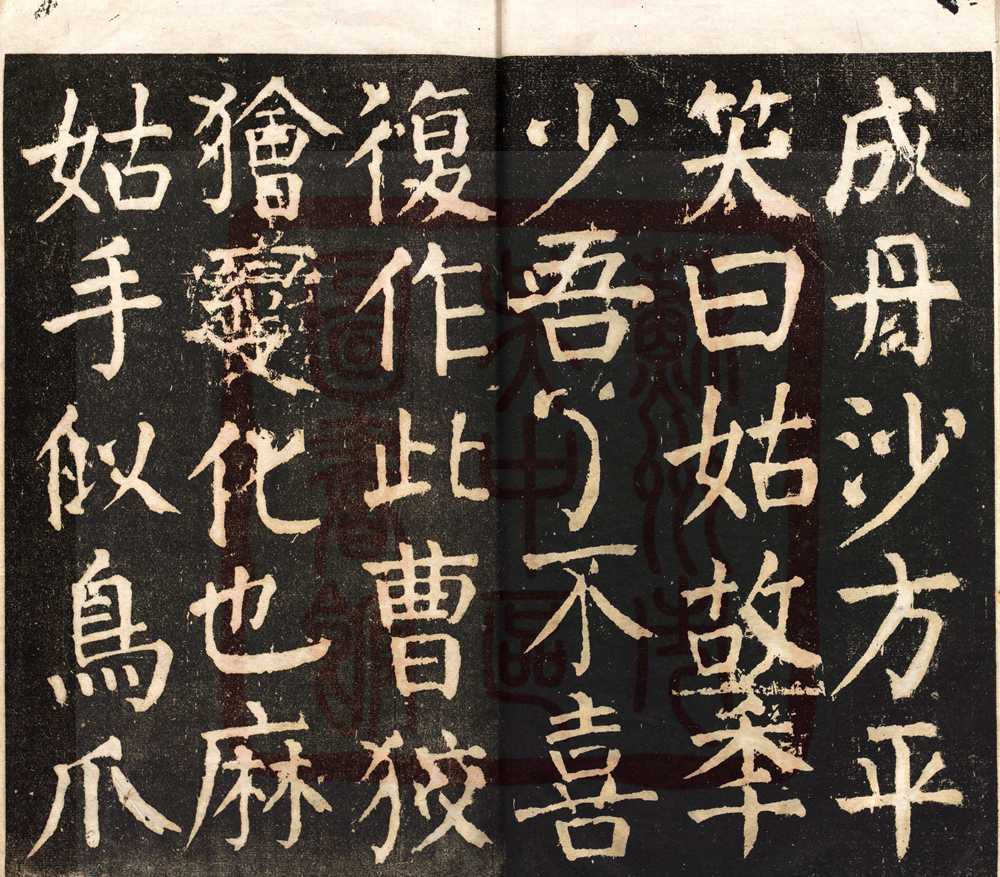 成丹沙方平
笑曰姑故年
少吾了不喜
復作此曹狡
獪變化也麻
姑手似鳥爪